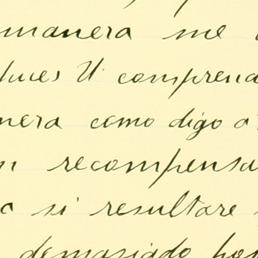 manera me
Ud comprend
nera como digo a
recompensa
si resultare
demasiado